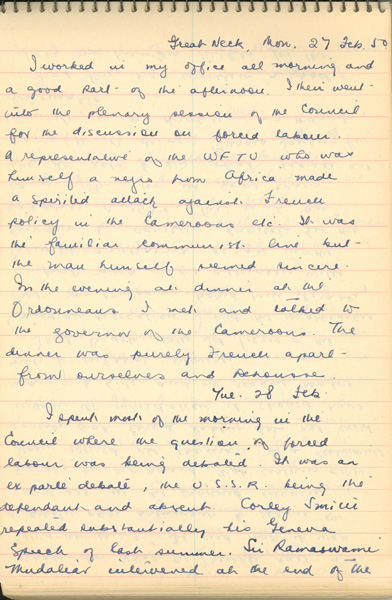 Great Neck, Mon. 27 Feb. 50
I worked in my office all morning and
a good part of the afternoon. I then went
into the plenary session of the Council
for the discussion on forced labour.
A representative of the WFTU who was
himself a negro from Africa made
a spirited attack against French
policy in the Cameroons etc. It was
the familiar communist line but
the man himself seemed sincere.
In the evening at dinner at the
Ordonneaus I met and talked to
the governor of the Cameroons. The
dinner was purely French apart
from ourselves and Dehousse.
Tue. 28 Feb.
I spent most of the morning in the
Council where the question of forced
labour was being debated. It was an
ex parte debate, the U.S.S.R. being the
defendant and absent. Corley Smith
repeated substantially his Geneva
speech of last summer. Sir Ramaswami
Mudaliar intervened at the end of the